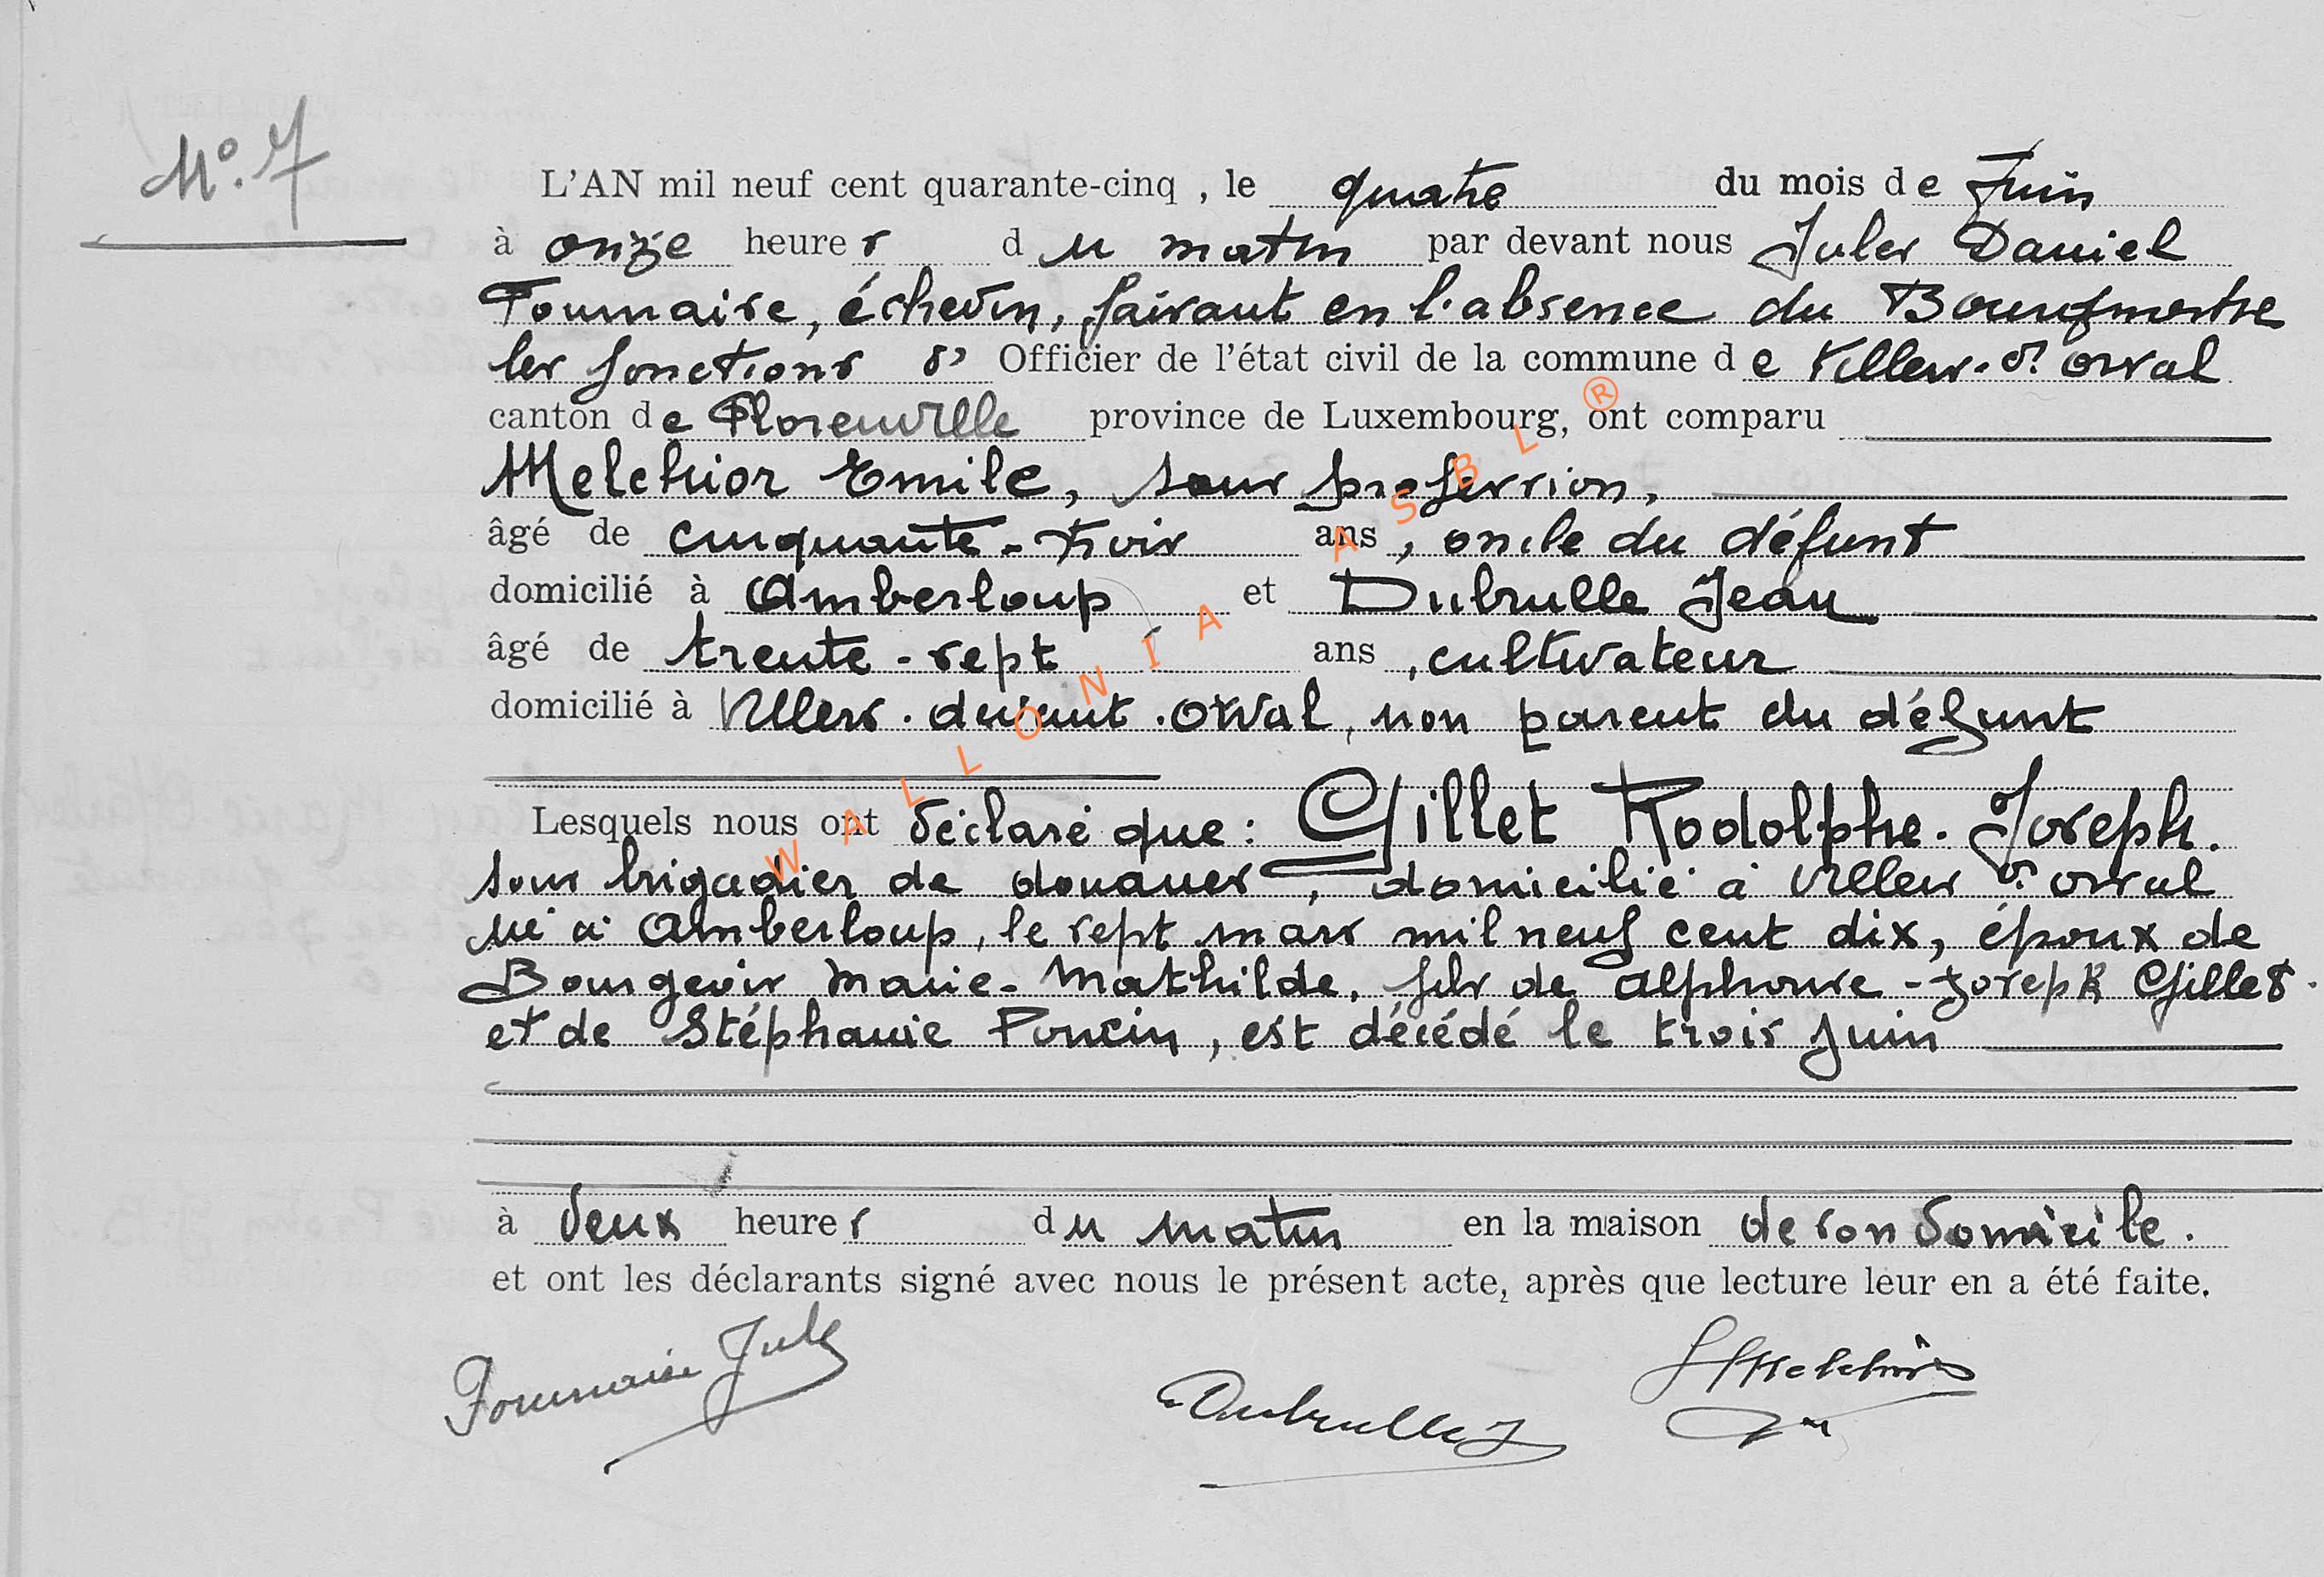 N°. 7
L'AN mil neuf cent quarante-cinq , le quatre du mois de Juin
à onze heures du matin par devant nous Jules Daniel
Fournaise, échevin, faisant en l'absence du Bourgmestre
les fonctions d' Officier de l'état civil de la commune de Villers-d'. Orval
canton de Florenville province de Luxembourg, ont comparu
Melchior Emile, sans profession,
âgé de cinquante-trois ans , oncle du défunt
domicilié à Amberloup et Dubrulle Jean
âgé de trente-sept ans , cultivateur
domicilié à Villers-devant-Orval, non parent du défunt
Lesquels nous ont déclaré que : Gillet Rodolphe-Joseph.
sous brigadier de douanes, domicilié à Villers d'. Orval
né à Amberloup, le sept mars mil neuf cent dix, époux de
Bourgeois Marie-Mathilde, fils de Alphonse-Joseph Gillet.
et de Stéphanie Poncin, est décédé le trois Juin
à deux heures du matin en la maison de son domicile.
et ont les déclarants signé avec nous le présent acte, après que lecture leur en a été faite.
Fournaise Jules
Dubrulle J
Melchior
WALLONIA ASBL ®